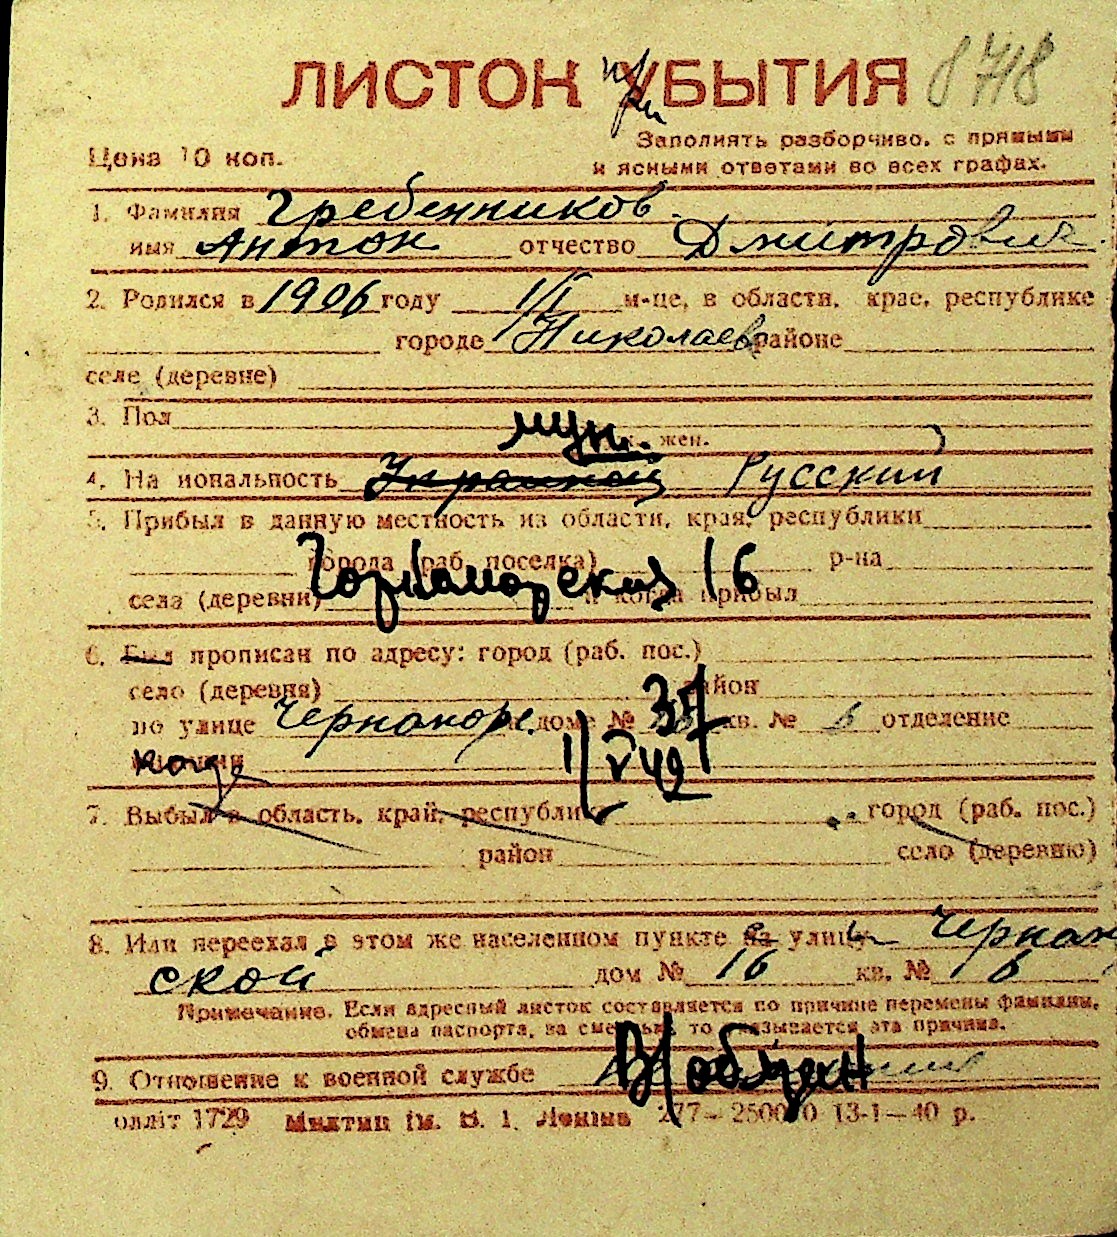 ЛИСТОК УБЫТИЯ при 8718
Цена 10 коп.
Заполнять разборчиво, с прямыми
и ясными ответами во всех графах.
1. Фамилия Гребенников
имя Антон отчество Дмитрович
2. Родился в 1906 году 1/I м-це, в области, крае, республике
городе Николаев районе
селе (деревне)
3. Пол муж. жен.
4. На иональность Украинец Русский
5. Прибыл в данную местность из области, края, республики
города (раб. поселка) р-на
села (деревни) и когда прибыл 16
6. Был прописан по адресу: город (раб. пос.)
село (деревня) район
по улице Черноморс. доме № 37 кв. № отделение
когда 1/V 42
7. Выбыл в область, край, республику город (раб. пос.)
район село (деревню)
8. Или переехал в этом же населенном пункте на улицу Черномор
ской дом № 16 кв. № 6
Примечание. Если адресный листок составляется по причине перемены фамилии,
обмена паспорта, за сме то указывается эта причина.
9. Отношение к военной службе В/обязан
олліт 1729 Миктип ім. В. І. Леніна 277— 2500 0 13-1—40 р.